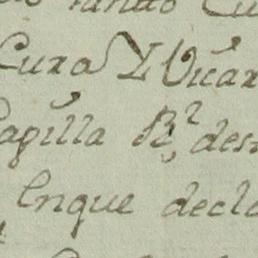 Cura Y Vicar
Capilla R.² des
Enque decla